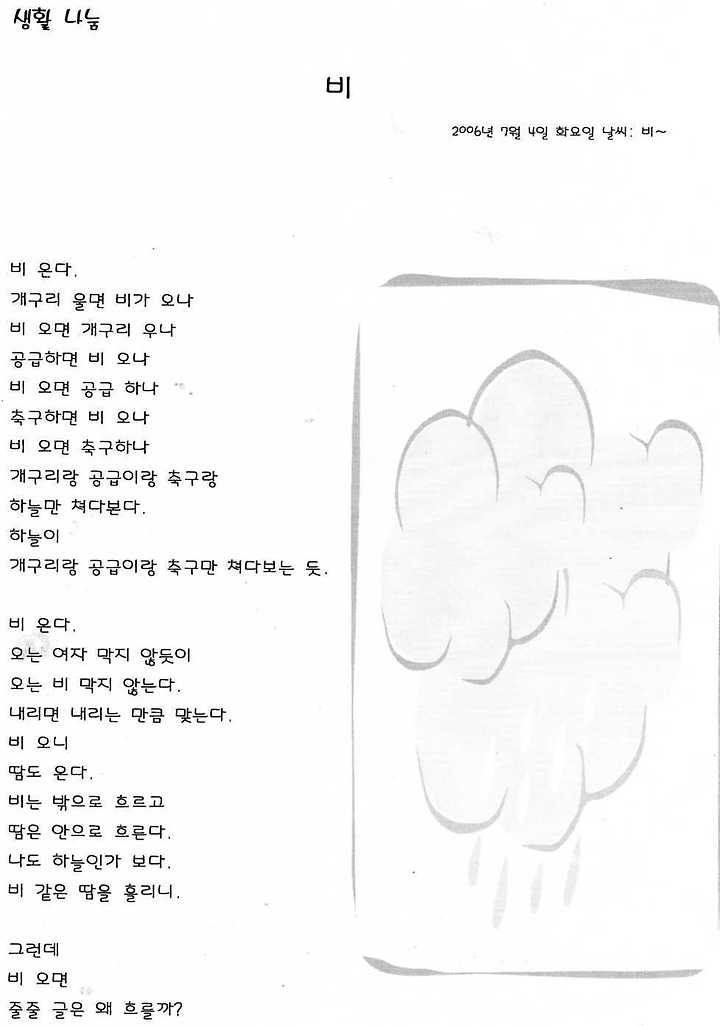 생활 나눔
비
2006년 7월 4일 화요일 날씨: 비~
비 온다.
개구리 울면 비가 오나
비 오면 개구리 우나
공급하면 비 오나
비 오면 공급 하나
축구하면 비 오나
비 오면 축구하나
개구리랑 공급이랑 축구랑
하늘만 쳐다본다.
하늘이
개구리랑 공급이랑 축구만 쳐다보는 듯.
비 온다.
오는 여자 막지 않듯이
오는 비 막지 않는다.
내리면 내리는 만큼 맞는다.
비 오니
땀도 온다.
비는 밖으로 흐르고
땀은 안으로 흐른다.
나도 하늘인가 보다.
비 같은 땀을 흘리니.
그런데
비 오면
줄줄 글은 왜 흐를까?